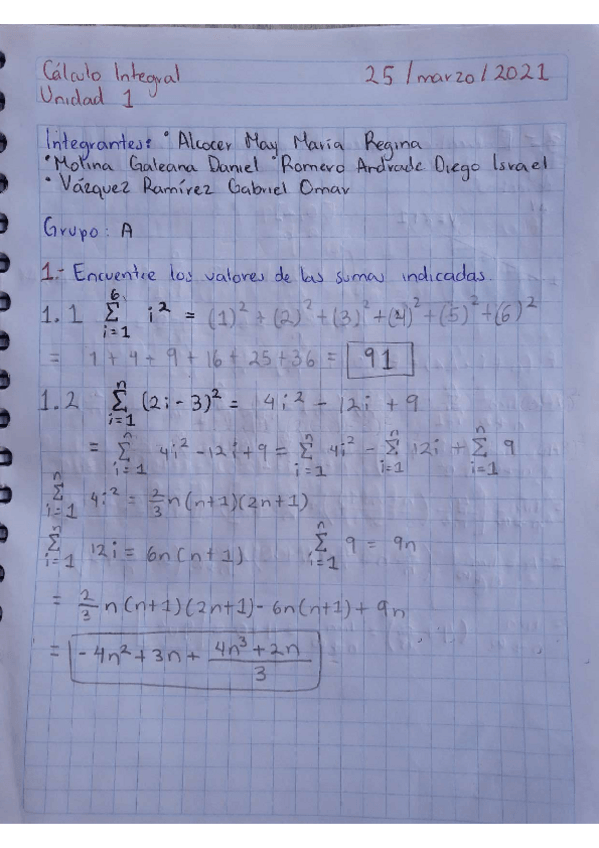 Cálculo Integral 25/marzo/2021
Unidad 1
Integrantes: • Alcocer May María Regina
• Molina Galeana Daniel • Romero Andrade Diego Israel
• Vázquez Ramírez Gabriel Omar
Grupo: A
1.- Encuentre los valores de las sumas indicadas.
1.1 ∑_{i=1}^{6} i² = (1)² + (2)² + (3)² + (4)² + (5)² + (6)²
= 1 + 4 + 9 + 16 + 25 + 36 = 91
1.2 ∑_{i=1}^{n} (2i - 3)² = 4i² - 12i + 9
= ∑_{i=1}^{n} 4i² - 12i + 9 = ∑_{i=1}^{n} 4i² - ∑_{i=1}^{n} 12i + ∑_{i=1}^{n} 9
∑_{i=1}^{n} 4i² = 2/3 n(n+1)(2n+1)
∑_{i=1}^{n} 12i = 6n(n+1) ∑_{i=1}^{n} 9 = 9n
= 2/3 n(n+1)(2n+1) - 6n(n+1) + 9n
= -4n² + 3n + (4n³ + 2n)/3